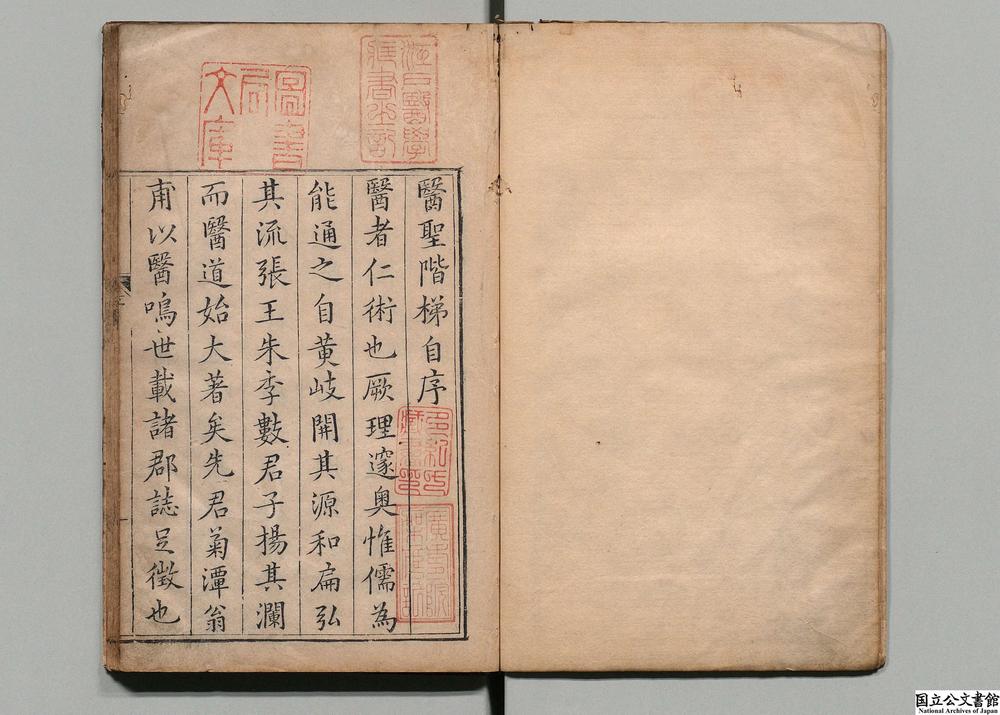 醫聖階梯自序
醫者仁術也厥理邃奥惟儒為
能通之自黄岐開其源和扁弘
其流張王朱李數君子揚其瀾
而醫道始大著矣先君菊潭翁
甫以醫鳴世載諸郡誌足徵也
圖書
局
文庫
江戸醫學
藏書之記
国立公文書館
National Archives of Japan